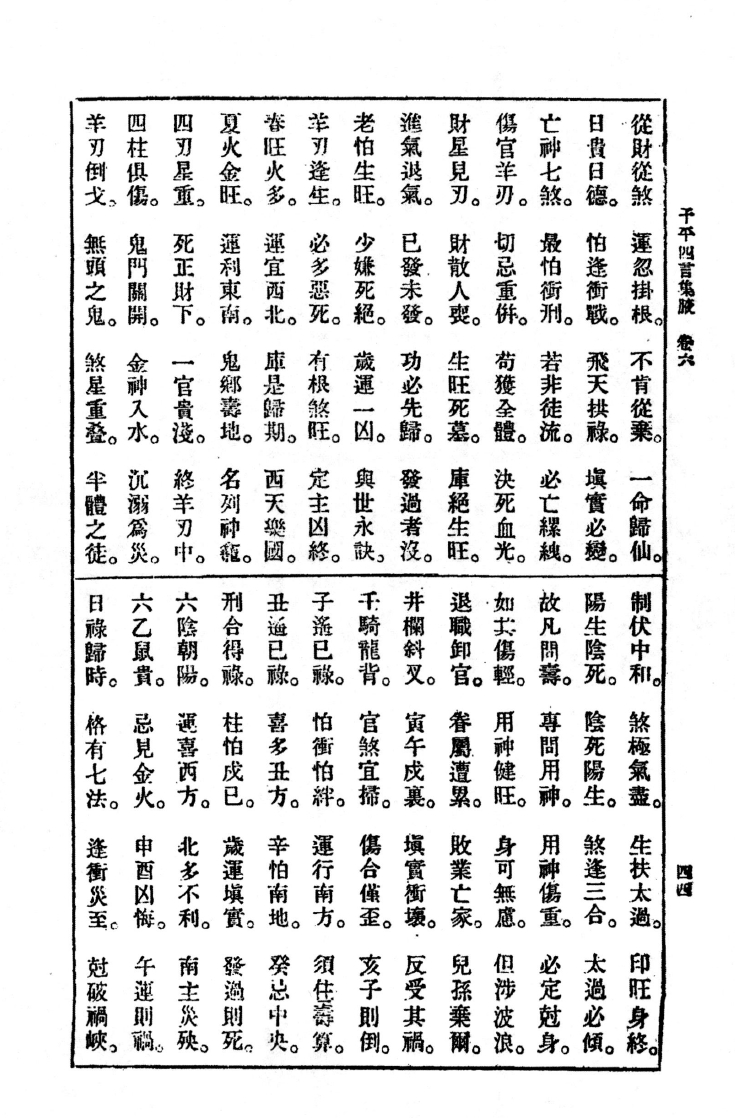 子平四言集腋 卷六 四四
從財從煞 運忽掛根。不肯從棄。一命歸仙。
日貴日德。怕逢衝戰。飛天拱祿。塡實必變。
亡神七煞。最怕衝刑。若非徒流。必亡縲絏。
傷官羊刃。切忌重併。苟獲全體。決死血光。
財星見刃。財散人喪。生旺死墓。庫絕生旺。
進氣退氣。已發未發。功必先歸。發過者沒。
老怕生旺。少嫌死絕。歲運一凶。與世永訣。
羊刃逢生。必多惡死。有根煞旺。定主凶終。
春旺火多。運宜西北。庫是歸期。西天樂國。
夏火金旺。運利東南。鬼鄉壽地。名列神龕。
四刃星重。死正財下。一官貴淺。終羊刃中。
四柱俱傷。鬼門關開。金神入水。沉溺爲災。
羊刃倒戈。無頭之鬼。煞星重疊。半體之徒。
制伏中和。煞極氣盡。生扶太過。印旺身終。
陽生陰死。陰死陽生。煞逢三合。太過必傾。
故凡問壽。專問用神。用神傷重。必定尅身。
如其傷輕。用神健旺。身可無慮。但涉波浪。
退職卸官。眷屬遭累。敗業亡家。兒孫棄爾。
井欄斜叉。寅午戌裏。塡實衝壞。反受其禍。
壬騎龍背。官煞宜掃。傷合僅歪。亥子則倒。
子遙巳祿。怕衝怕絆。運行南方。須住壽算。
丑遙巳祿。喜多丑方。辛怕南地。癸忌中央。
刑合得祿。柱怕戍巳。歲運塡實。發過則死。
六陰朝陽。運喜西方。北多不利。南主災殃。
六乙鼠貴。忌見金火。申酉凶悔。午運則禍。
日祿歸時。格有七法。逢衝災至。尅破禍峽。